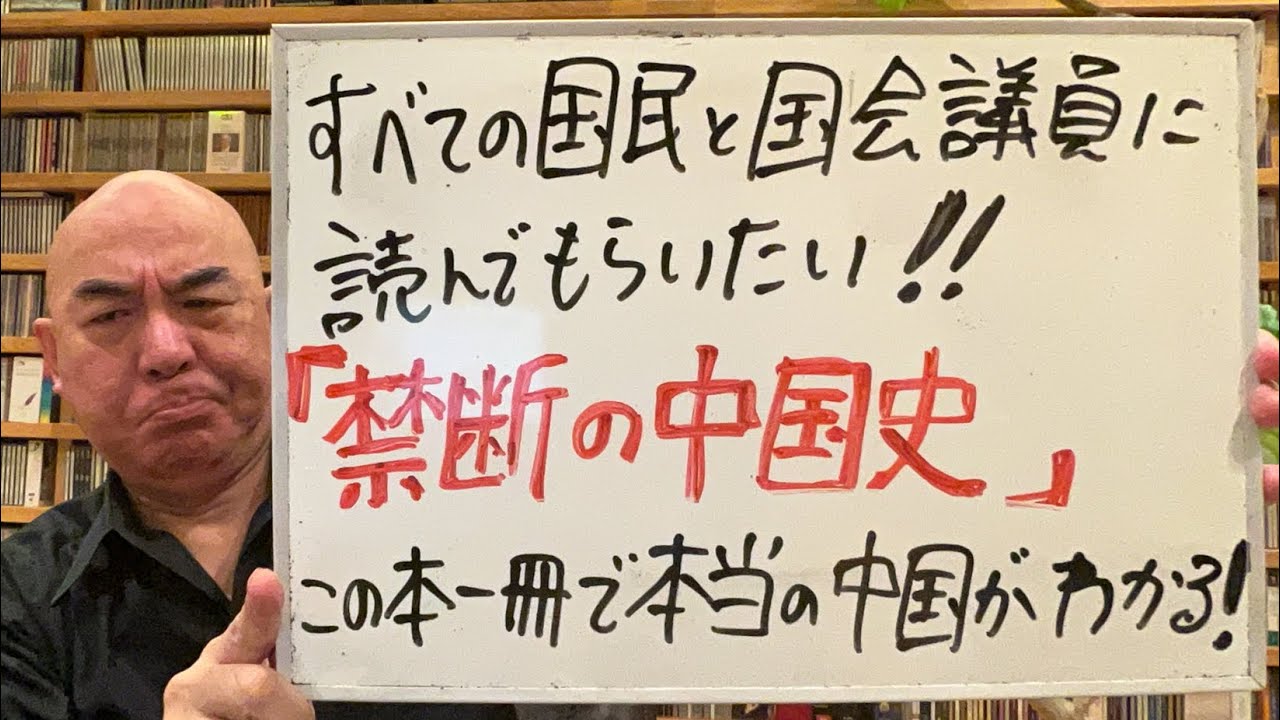 すべての国民と国会議員に
読んでもらいたい!!
「禁断の中国史」
この本一冊で本当の中国がわかる!